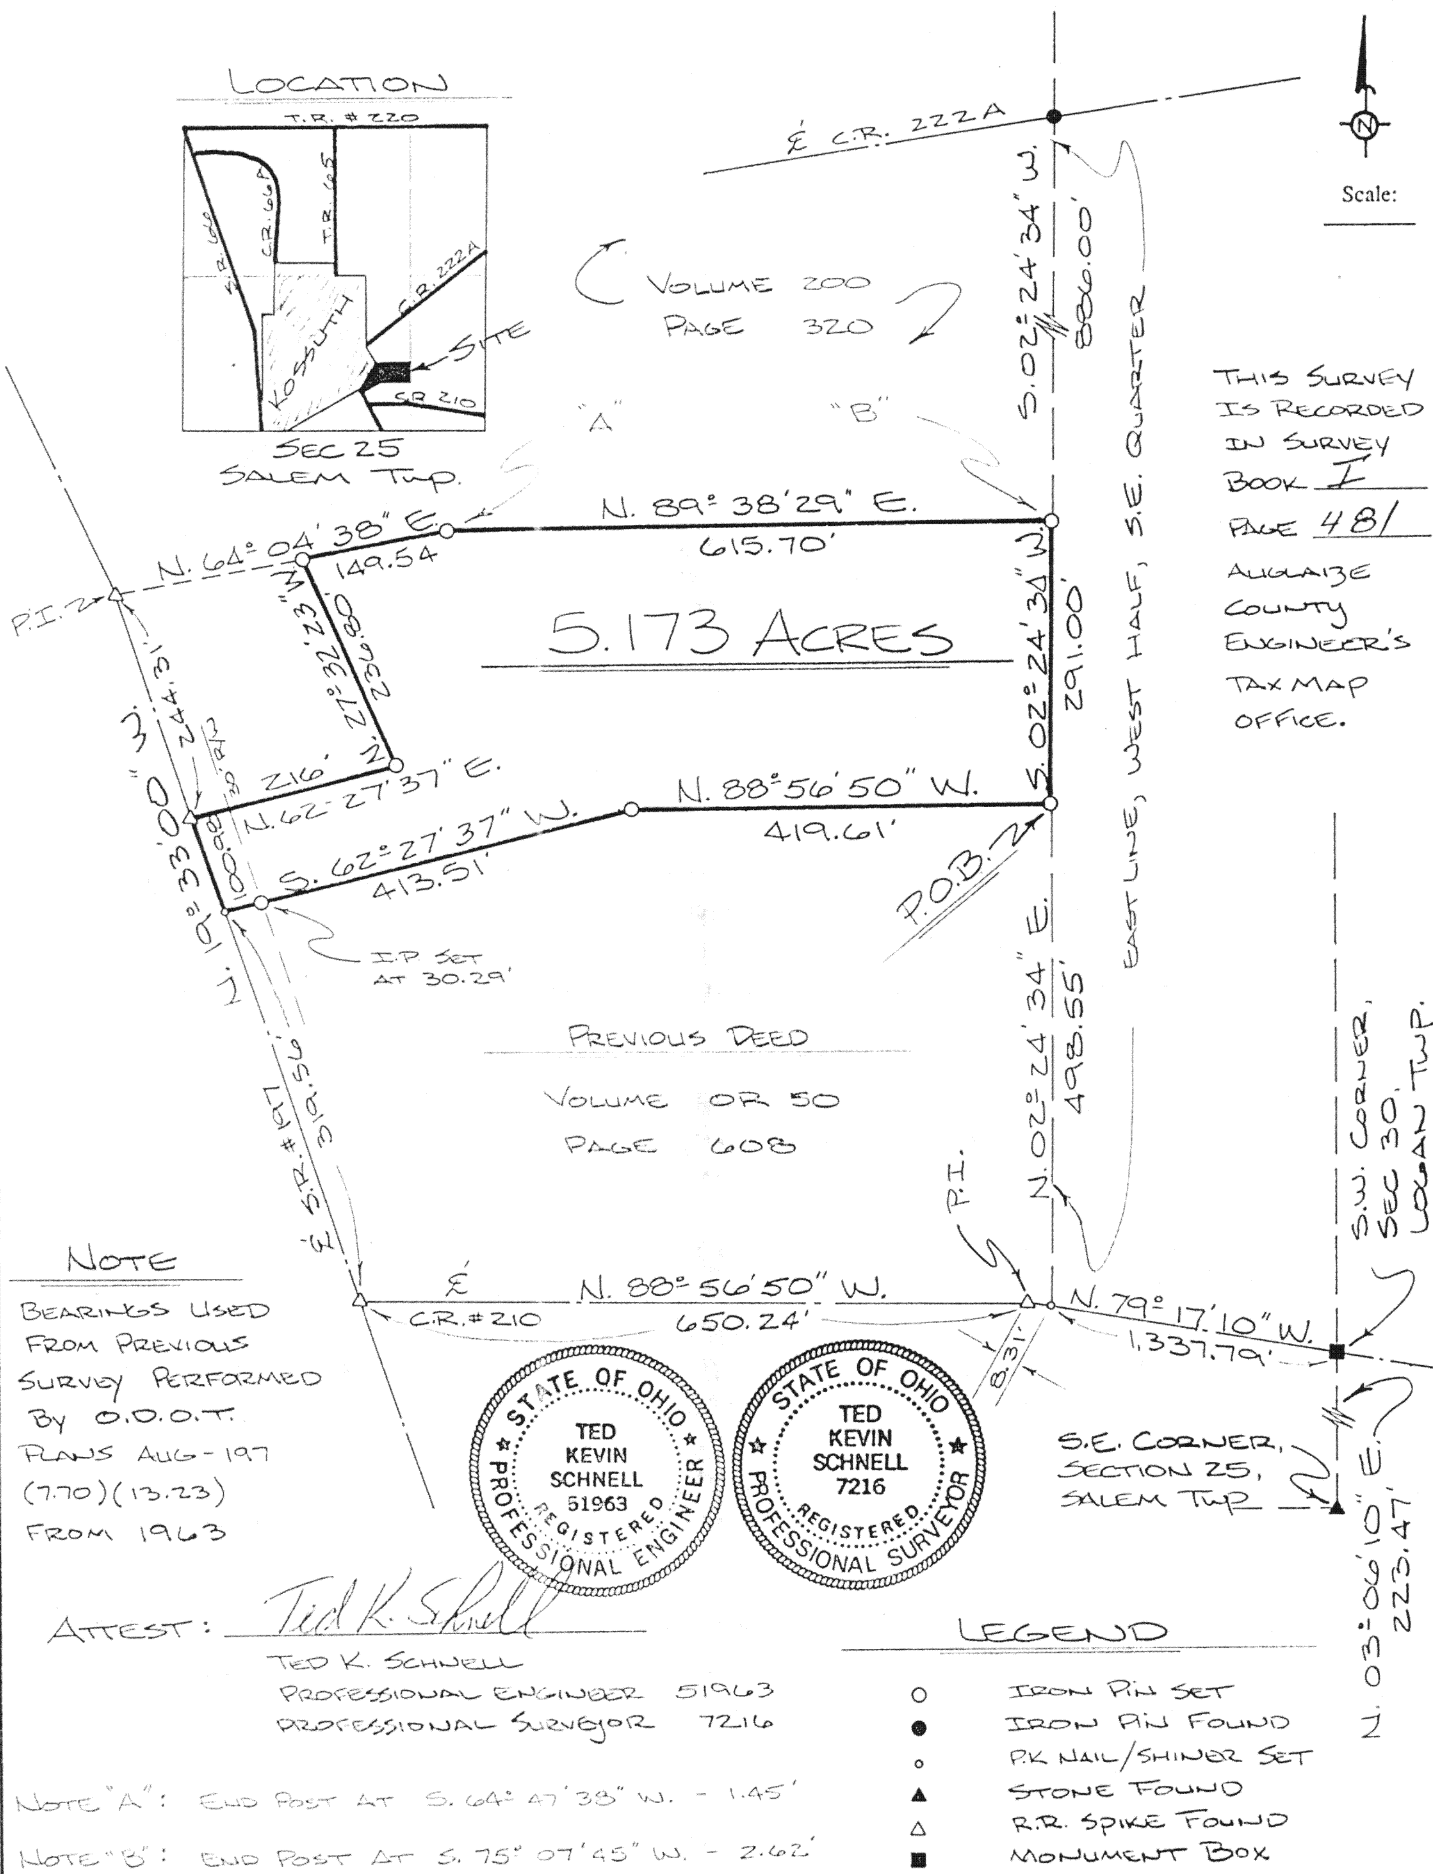 LOCATION
T.R. # 220
S.R. 66
C.R. 66A
T.R. 65
C.R. 222A
KOSSUTH
SITE
C.R. 210
SEC 25
SALEM TWP.
℄ C.R. 222A
Scale:
VOLUME 200
PAGE 320
S. 02° 24' 34" W.
886.00'
THIS SURVEY
IS RECORDED
IN SURVEY
BOOK I
PAGE 481
AUGLAIZE
COUNTY
ENGINEER'S
TAX MAP
OFFICE.
"A"
"B"
N. 64° 04' 38" E.
149.54
N. 89° 38' 29" E.
615.70'
P.I.
5.173 ACRES
N. 27° 32' 23" W.
236.80'
S. 02° 24' 34" W.
291.00'
EAST LINE, WEST HALF, S.E. QUARTER
244.31'
30' R/W
216'
N. 62° 27' 37" E.
100.98
N. 19° 33' 00" W.
S. 62° 27' 37" W.
413.51'
N. 88° 56' 50" W.
419.61'
P.O.B.
I.P SET
AT 30.29'
N. 02° 24' 34" E.
498.55'
PREVIOUS DEED
VOLUME OR 50
PAGE 608
℄ S.R. #197
319.56'
S.W. CORNER,
SEC 30,
LOGAN TWP.
P.I.
NOTE
BEARINGS USED
FROM PREVIOUS
SURVEY PERFORMED
BY O.D.O.T.
PLANS AUG-197
(7.70)(13.23)
FROM 1963
℄
C.R. #210
N. 88° 56' 50" W.
650.24'
8.31'
N. 79° 17' 10" W.
1,337.79'
STATE OF OHIO
TED
KEVIN
SCHNELL
51963
REGISTERED
PROFESSIONAL ENGINEER
STATE OF OHIO
TED
KEVIN
SCHNELL
7216
REGISTERED
PROFESSIONAL SURVEYOR
S.E. CORNER,
SECTION 25,
SALEM TWP
N. 03° 06' 10" E.
223.47'
ATTEST: Ted K. Schnell
TED K. SCHNELL
PROFESSIONAL ENGINEER 51963
PROFESSIONAL SURVEYOR 7216
LEGEND
IRON PIN SET
IRON PIN FOUND
P.K NAIL/SHINER SET
STONE FOUND
R.R. SPIKE FOUND
MONUMENT BOX
NOTE "A": END POST AT S. 64° 47' 38" W. - 1.45'
NOTE "B": END POST AT S. 75° 07' 45" W. - 2.62'
N